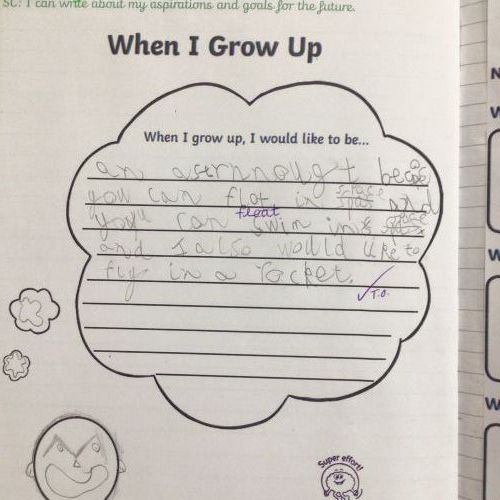 SC: I can write about my aspirations and goals for the future.
When I Grow Up
When I grow up, I would like to be...
an asrnnought becose
you can flot in space and
float
you can swin in space
and I also would like to
fly in a rocket.
T.O.
Super effort!